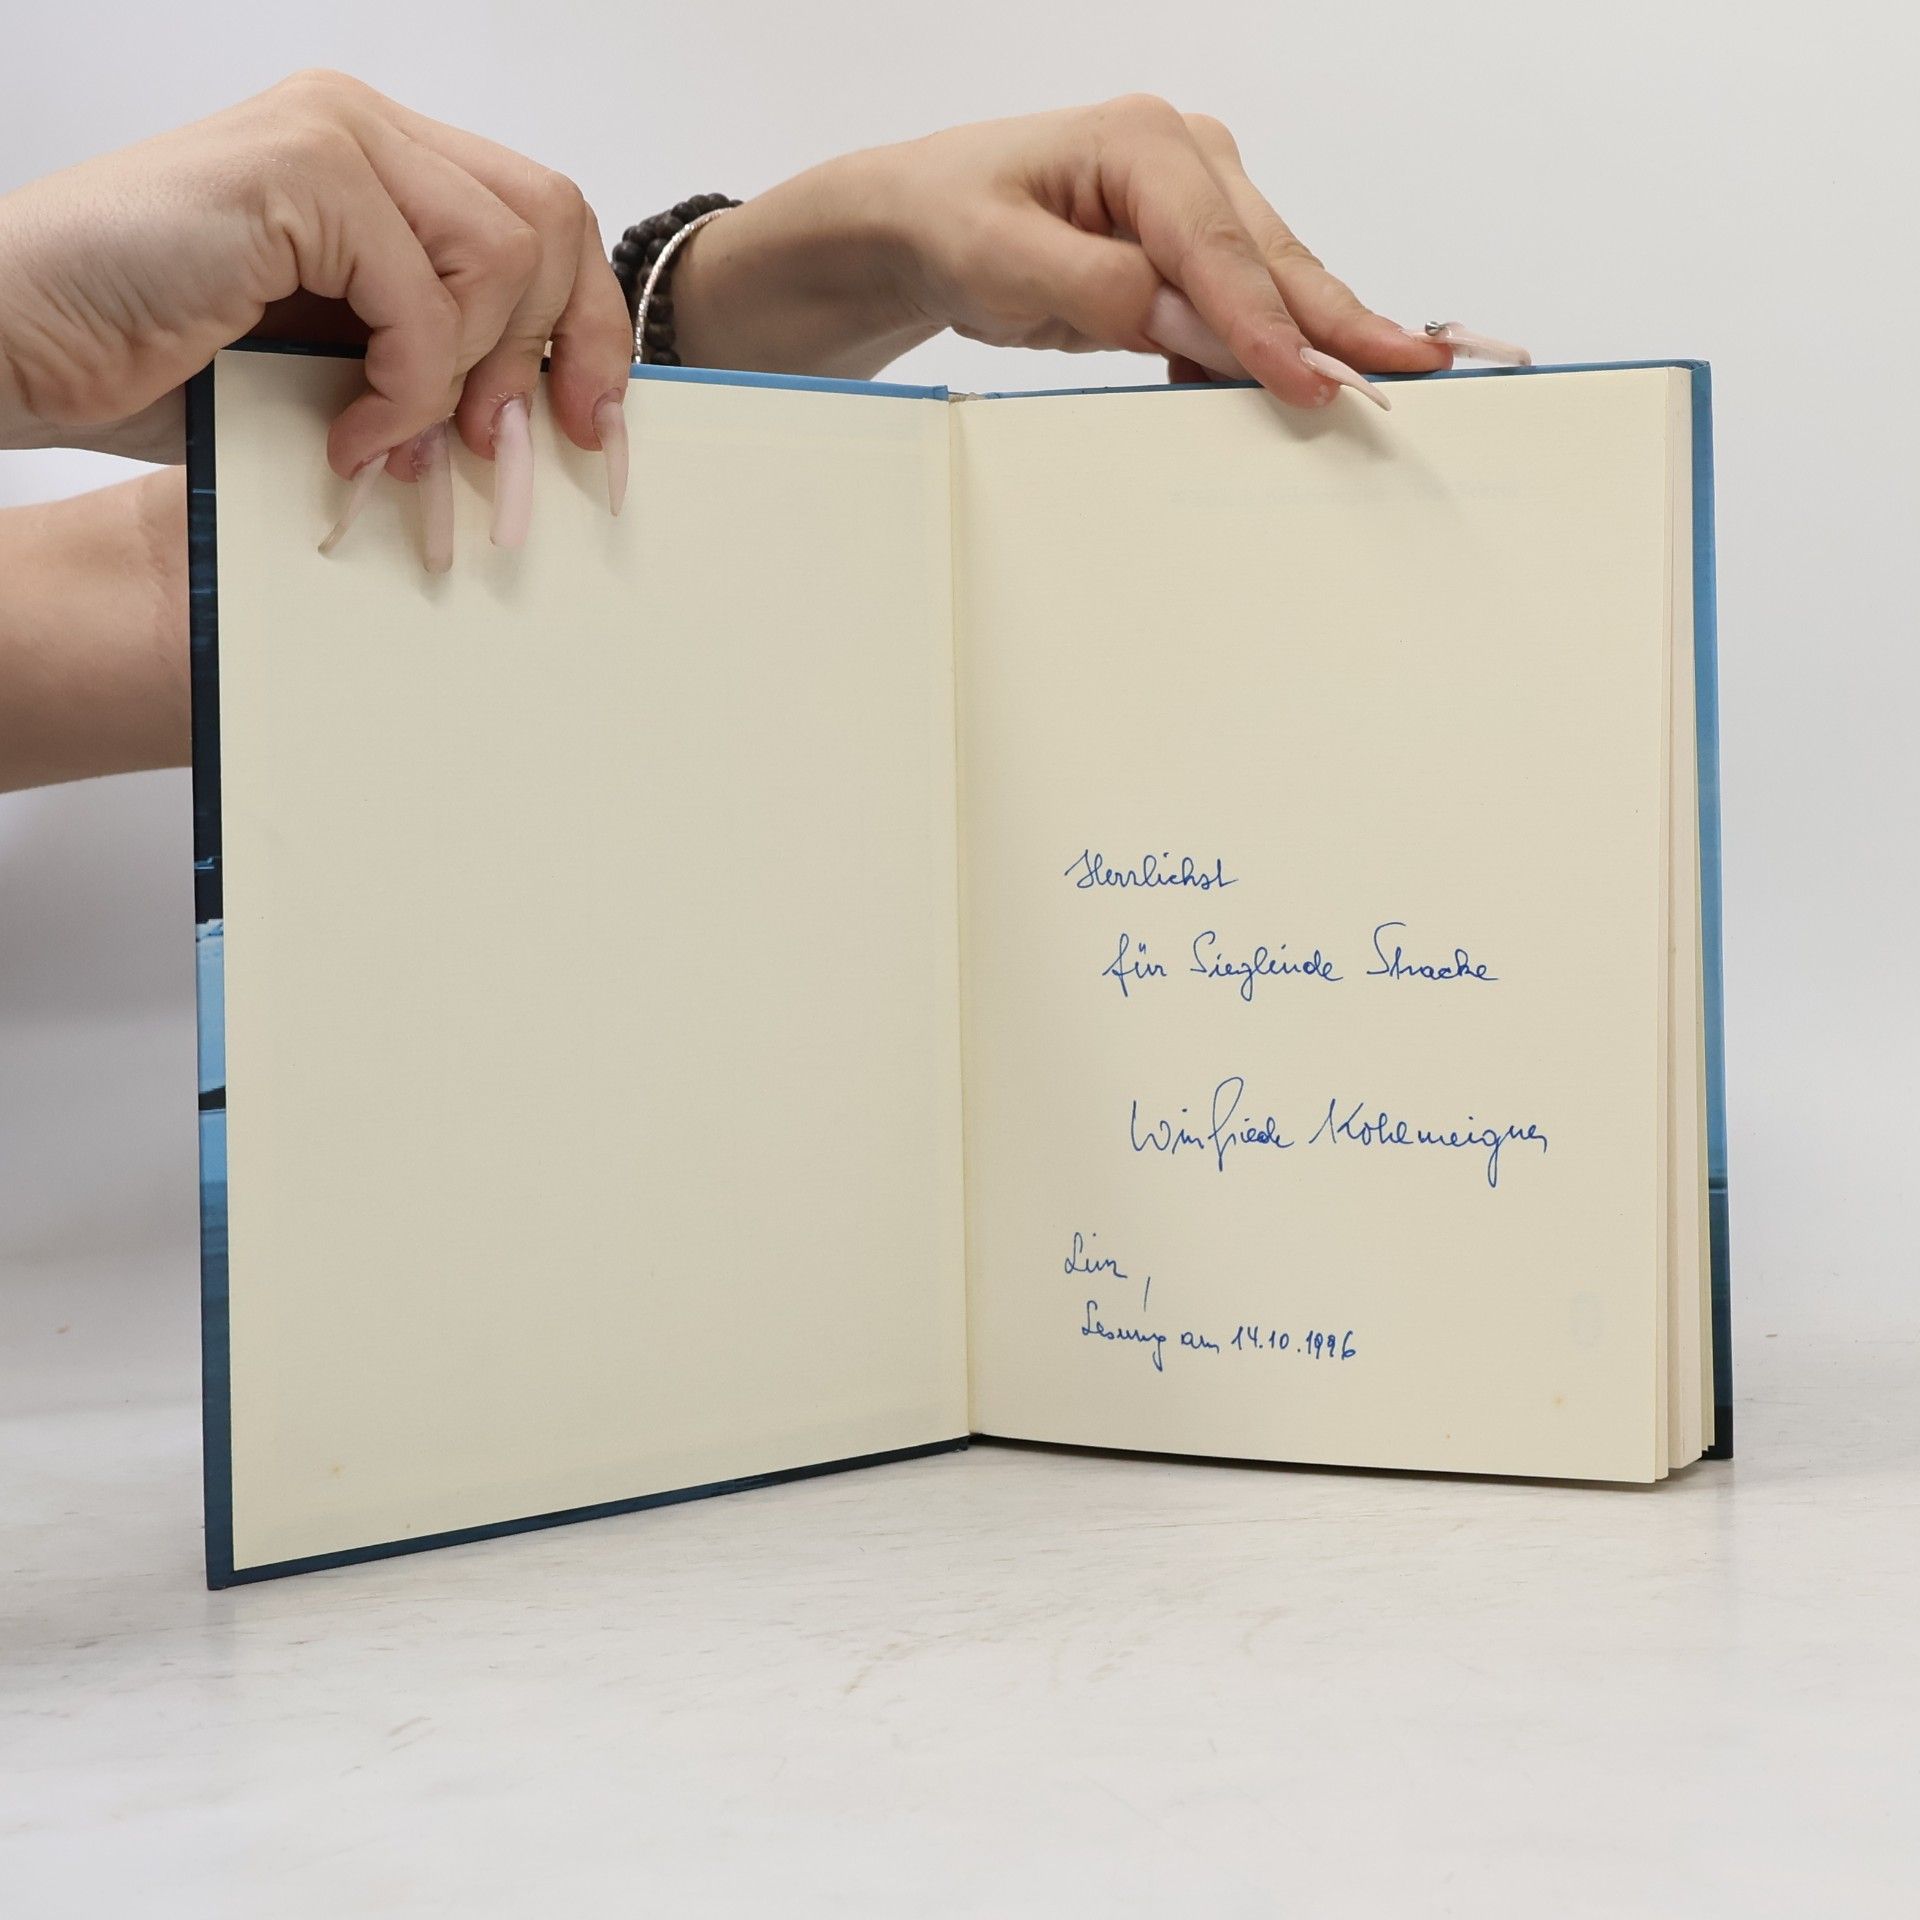 Herzlichst
für Sieglinde Stracke
Winfriede
Linz,
Lesung am 14.10.1996